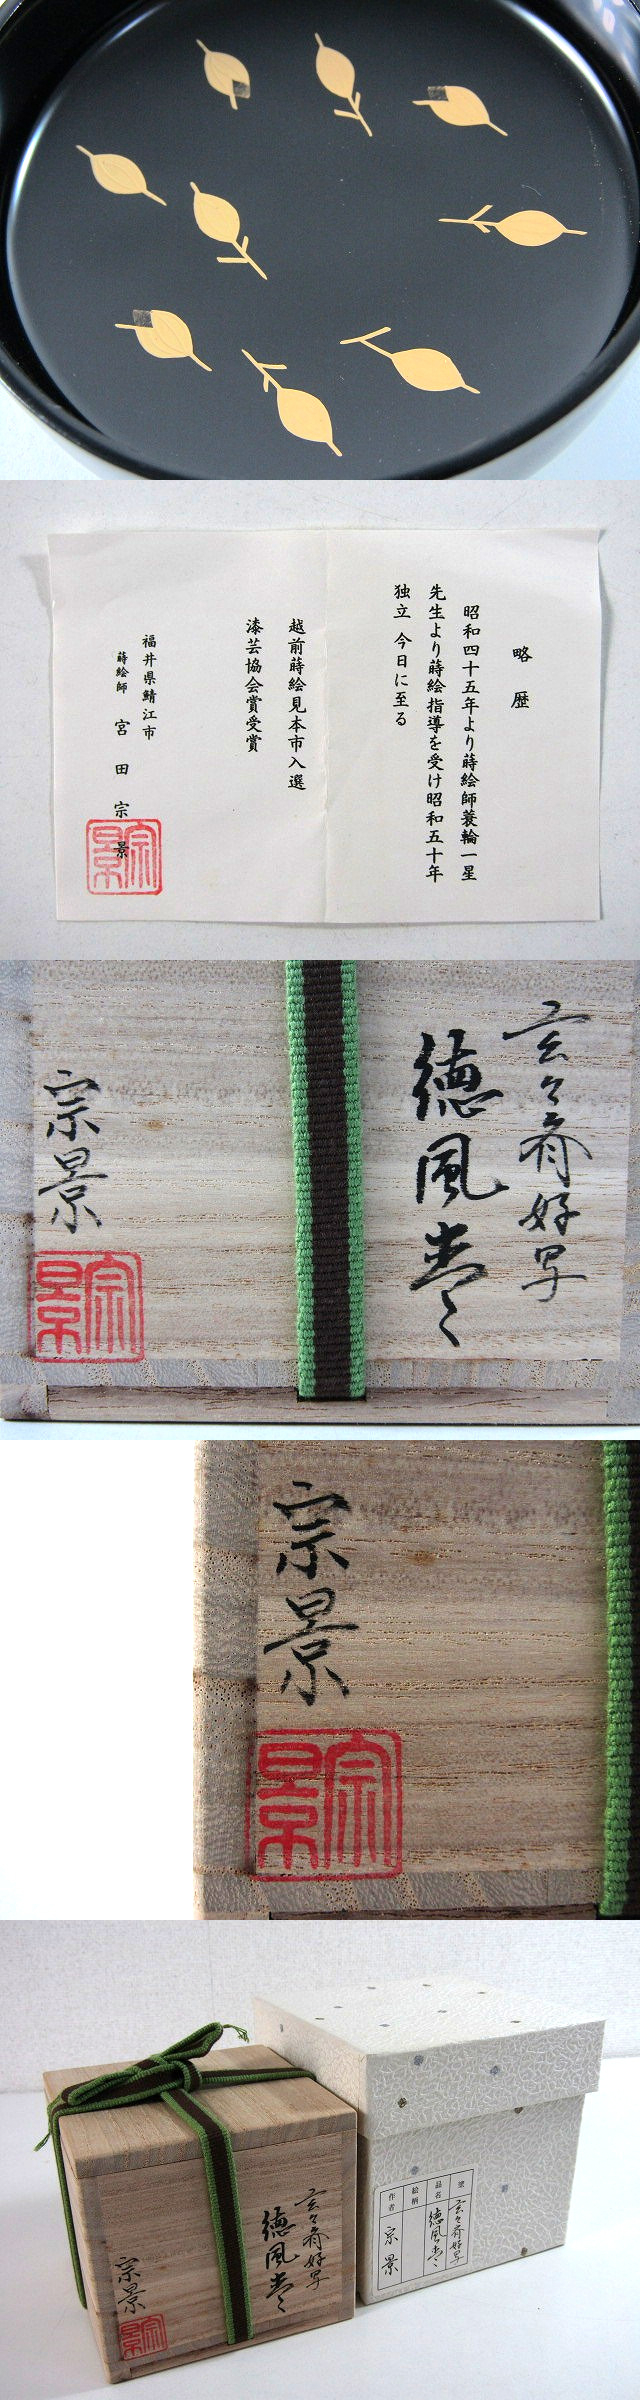 略歴
昭和四十五年より蒔絵師蓑輪一星
先生より蒔絵指導を受け昭和五十年
独立 今日に至る
越前蒔絵見本市入選
漆芸協会賞受賞
福井県鯖江市
蒔絵師 宮田宗景
宗景
玄々斎好写
徳風棗
宗景
宗景
宗景
宗景
玄々斎好写
徳風棗
宗景
宗景
塗 玄々斎好写
品名 徳風棗
絵柄
作者 宗景